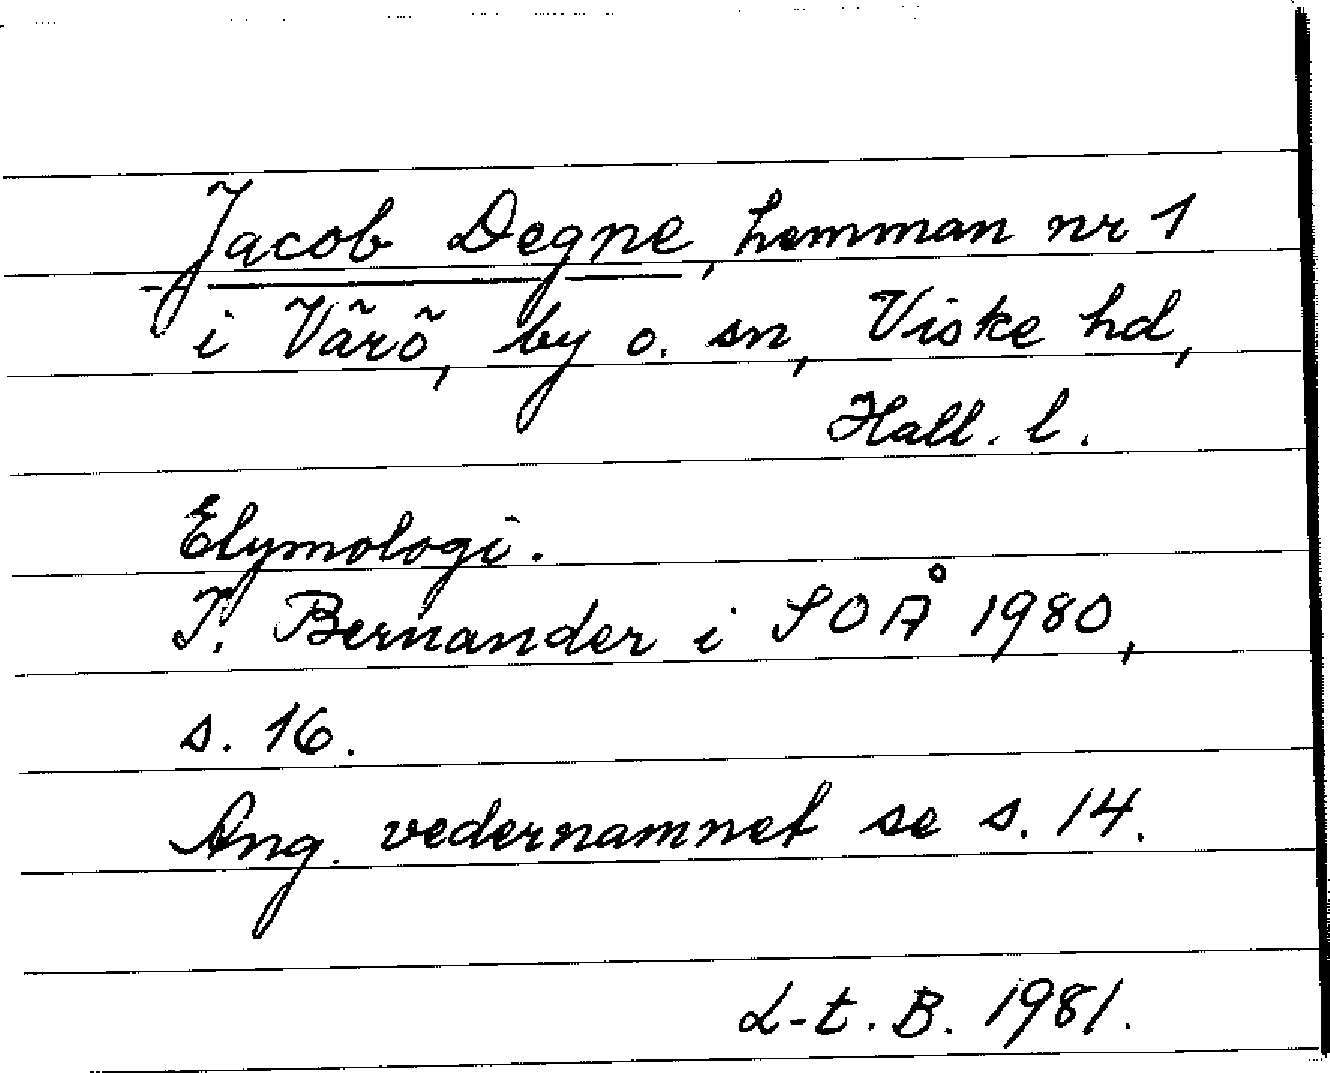 Jacob Degne, hemman nr 1
i Värö, by o. sn, Viske hd,
Hall. l.
Etymologi.
T. Bernander i SOÅ 1980,
s. 16.
Ang. vedernamnet se s. 14.
L-t. B. 1981.